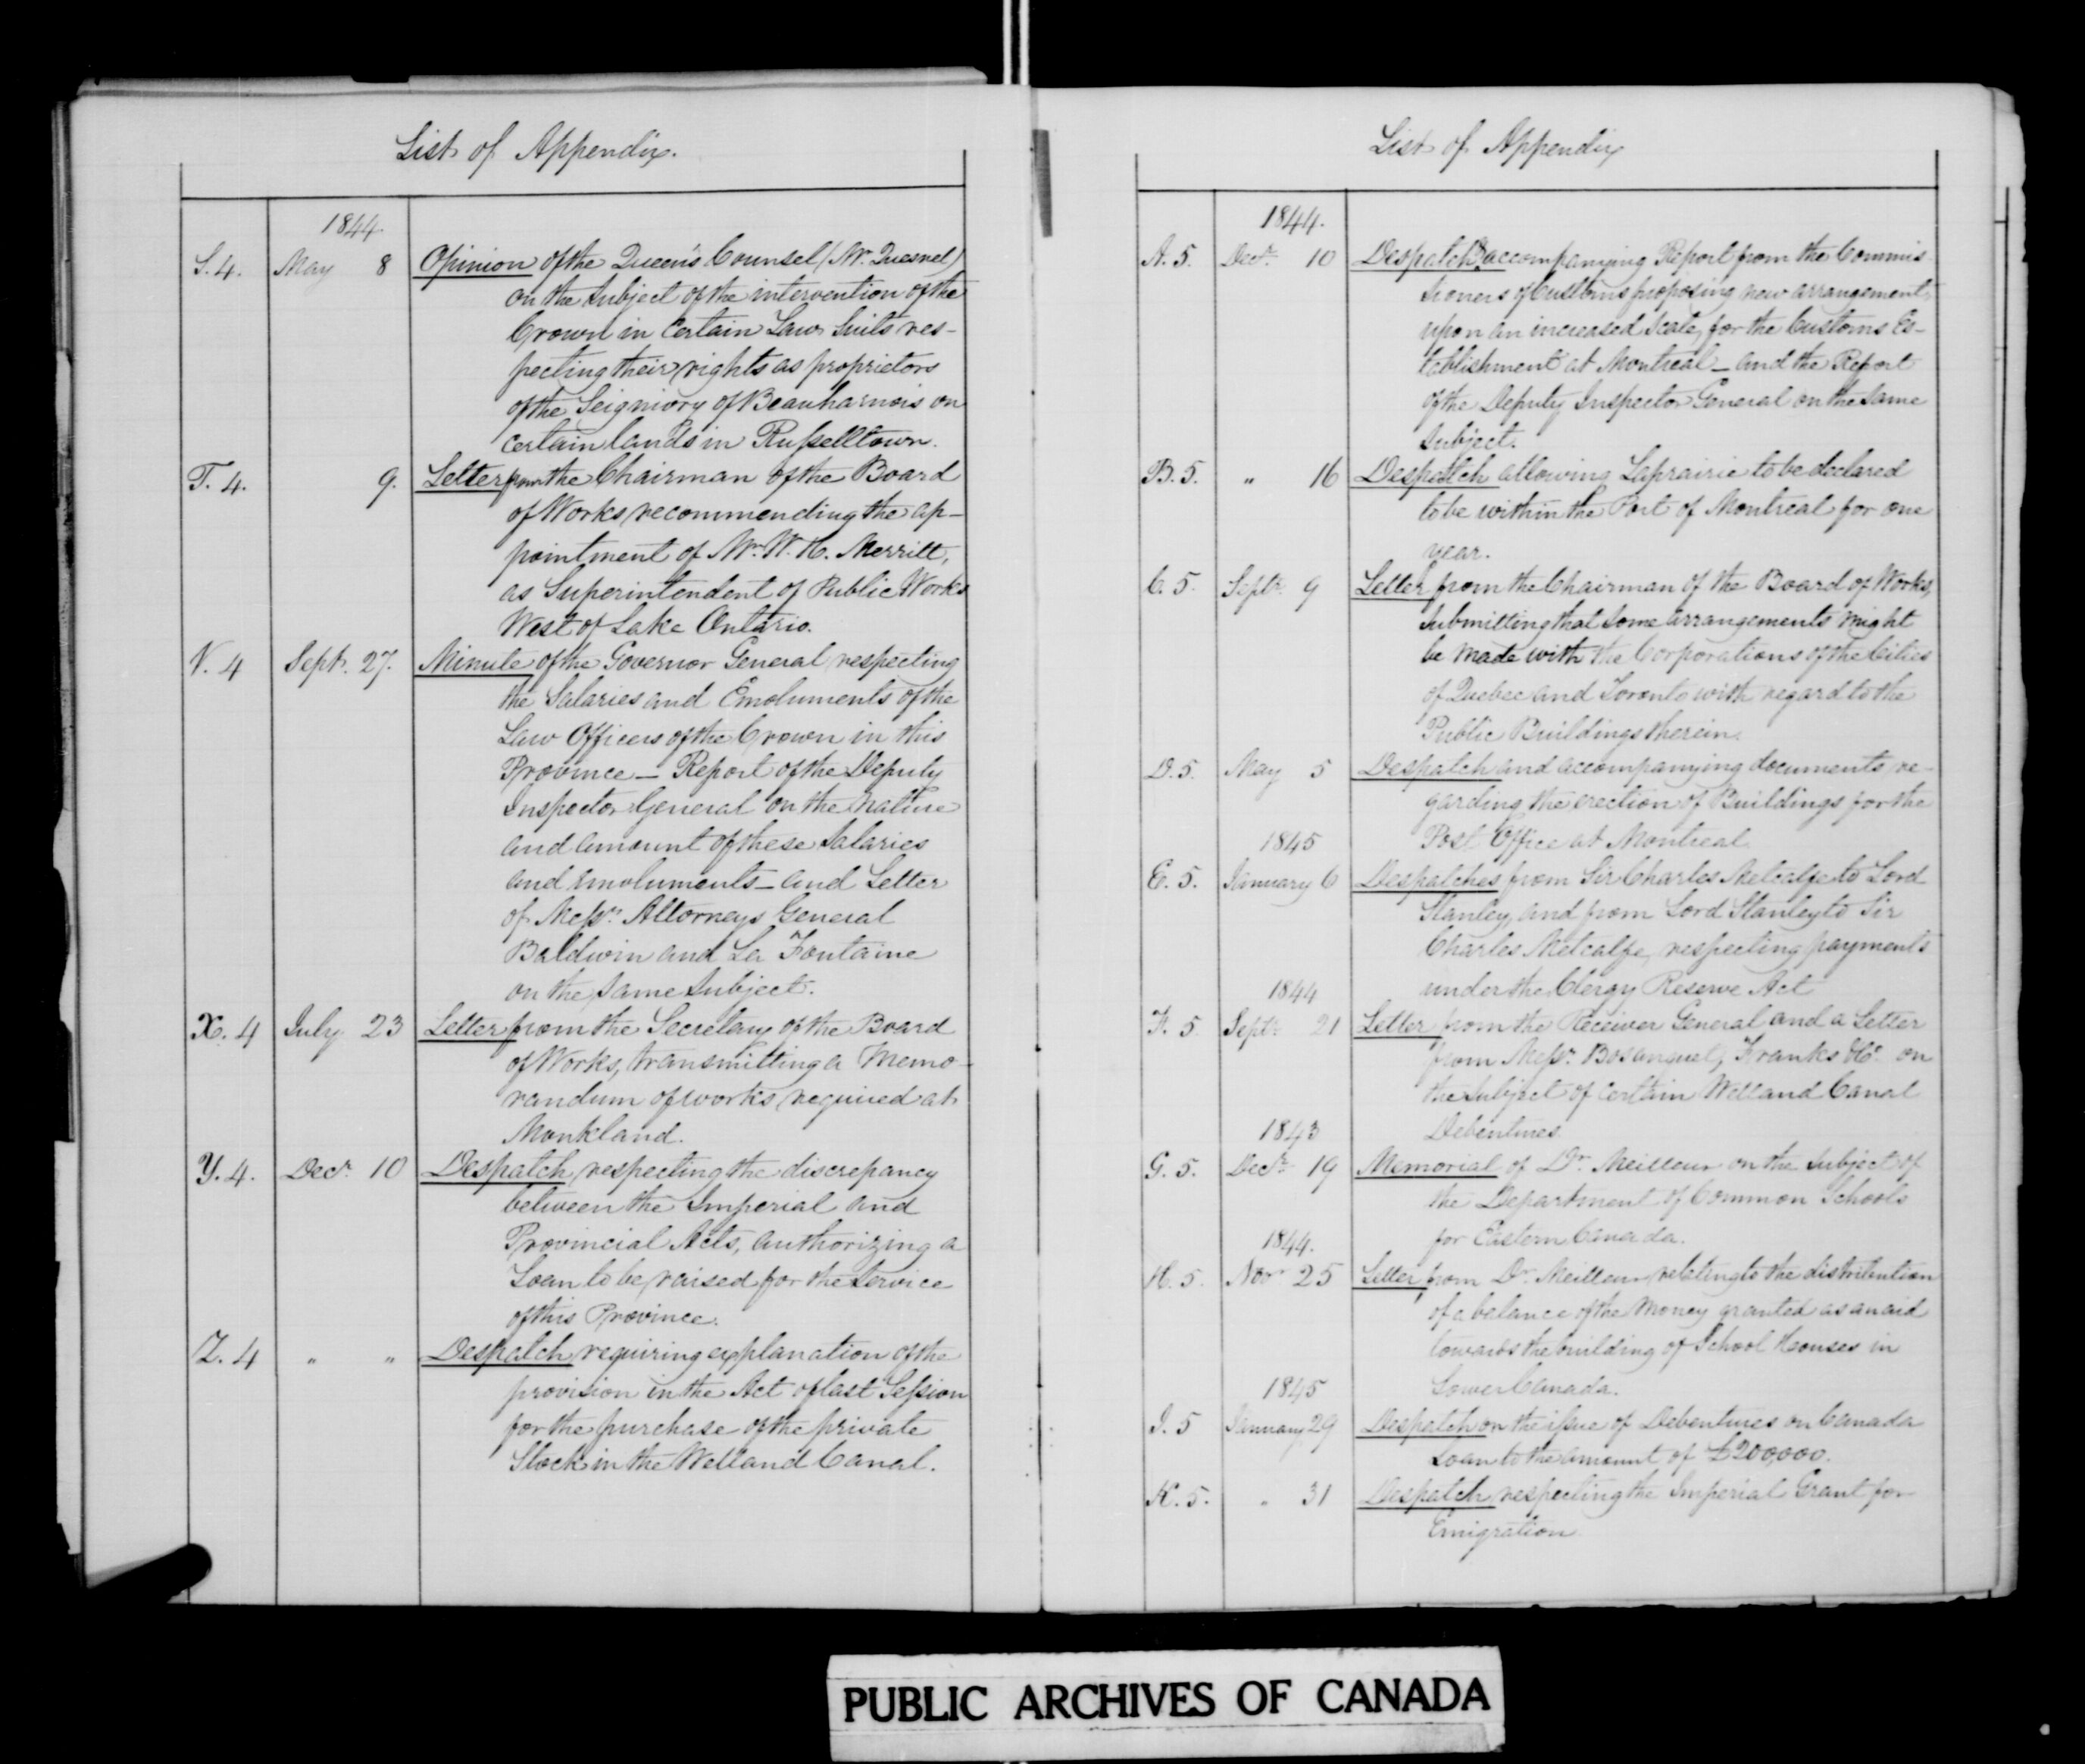 List of Appendix.
1844.
S. 4. May 8 Opinion of the Queen's Counsel (Mr. Quesnel)
on the subject of the intervention of the
Crown in certain Law Suits res-
pecting their rights as proprietors
of the Seigniory of Beauharnois on
certain lands in Russelltown.
T. 4. 9. Letter from the Chairman of the Board
of Works recommending the ap-
pointment of Mr. W. H. Merritt,
as Superintendent of Public Works
West of Lake Ontario.
V. 4 Sept. 27. Minute of the Governor General respecting
the Salaries and Emoluments of the
Law Officers of the Crown in this
Province - Report of the Deputy
Inspector General on the nature
and amount of these salaries
and emoluments - and Letter
of Messrs. Attorneys General
Baldwin and La Fontaine
on the same subject.
X. 4 July 23 Letter from the Secretary of the Board
of Works, transmitting a Memo-
randum of works required at
Monkland.
Y. 4. Decr. 10 Despatch respecting the discrepancy
between the Imperial and
Provincial Acts, authorizing a
Loan to be raised for the service
of this Province.
Z. 4 " " Despatch requiring explanation of the
provision in the Act of last Session
for the purchase of the private
Stock in the Welland Canal.
List of Appendix
1844.
A. 5. Decr. 10 Despatch accompanying Report from the Commis-
sioners of Customs proposing new arrangements,
upon an increased scale, for the Customs Es-
tablishment at Montreal - and the Report
of the Deputy Inspector General on the same
subject.
B. 5. " 16 Despatch allowing Laprairie to be declared
to be within the Port of Montreal for one
year.
C. 5. Septr. 9 Letter from the Chairman of the Board of Works,
submitting that some arrangements might
be made with the Corporations of the Cities
of Quebec and Toronto with regard to the
Public Buildings therein.
D. 5. May 5 Despatch and accompanying documents re-
garding the erection of Buildings for the
Post Office at Montreal
1845
E. 5. January 6 Despatches from Sir Charles Metcalfe to Lord
Stanley, and from Lord Stanley to Sir
Charles Metcalfe, respecting payments
under the Clergy Reserve Act
1844
F. 5. Septr. 21 Letter from the Receiver General and a Letter
from Messrs. Bosanquet, Franks &Co. on
the subject of certain Welland Canal
Debentures
1843
G. 5. Decr. 19 Memorial of Dr. Meilleur on the subject of
the Department of Common Schools
for Eastern Canada.
1844.
H. 5. Novr 25 Letter from Dr. Meilleur relating to the distribution
of a balance of the money granted as an aid
towards the building of School Houses in
Lower Canada.
1845
I. 5 January 29 Despatch on the issue of Debentures on Canada
Loan to the amount of £200,000.
K. 5. " 31 Despatch respecting the Imperial Grant for
Emigration
PUBLIC ARCHIVES OF CANADA